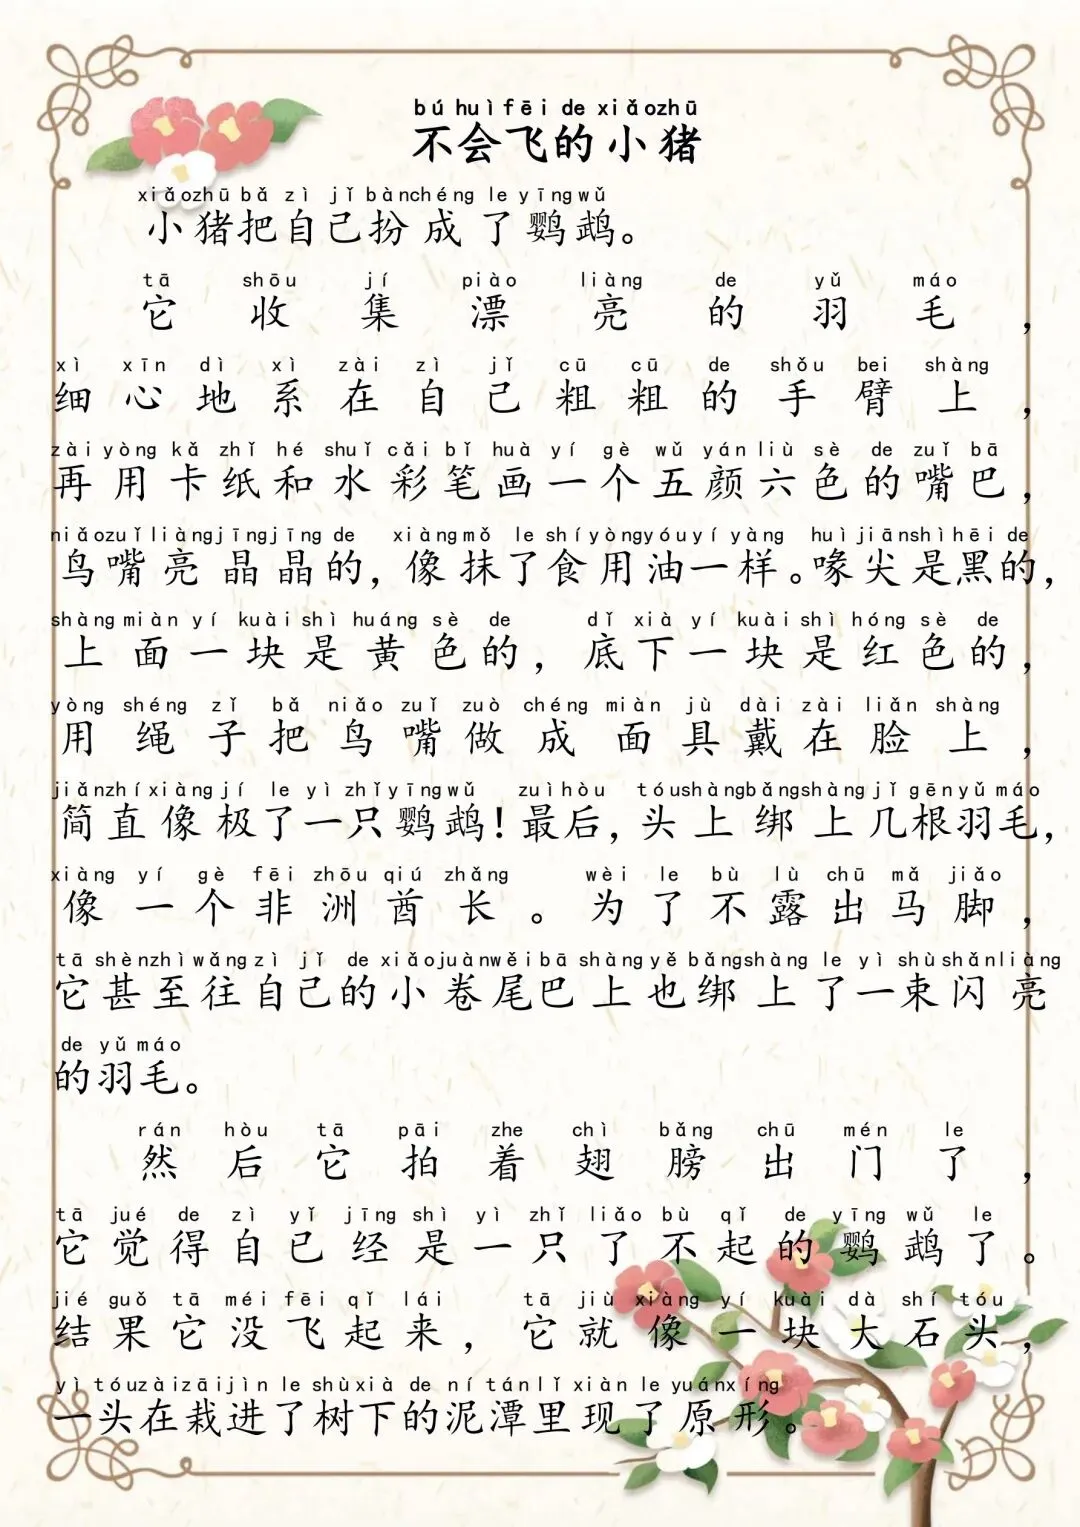 bú huì fēi de xiǎo zhū
不会飞的小猪
xiǎo zhū bǎ zì jǐ bàn chéng le yīng wǔ
小猪把自己扮成了鹦鹉。
tā shōu jí piào liàng de yǔ máo
它收集漂亮的羽毛，
xì xīn dì xì zài zì jǐ cū cū de shǒu bei shàng
细心地系在自己粗粗的手臂上，
zài yòng kǎ zhǐ hé shuǐ cǎi bǐ huà yí gè wǔ yán liù sè de zuǐ bā
再用卡纸和水彩笔画一个五颜六色的嘴巴，
niǎo zuǐ liàng jīng jīng de xiàng mǒ le shí yòng yóu yí yàng huì jiān shì hēi de
鸟嘴亮晶晶的，像抹了食用油一样。喙尖是黑的，
shàng miàn yí kuài shì huáng sè de dǐ xià yí kuài shì hóng sè de
上面一块是黄色的，底下一块是红色的，
yòng shéng zǐ bǎ niǎo zuǐ zuò chéng miàn jù dài zài liǎn shàng
用绳子把鸟嘴做成面具戴在脸上，
jiǎn zhí xiàng jí le yì zhǐ yīng wǔ zuì hòu tóu shàng bǎng shàng jǐ gēn yǔ máo
简直像极了一只鹦鹉！最后，头上绑上几根羽毛，
xiàng yí gè fēi zhōu qiú zhǎng wèi le bù lù chū mǎ jiǎo
像一个非洲酋长。为了不露出马脚，
tā shèn zhì wǎng zì jǐ de xiǎo juàn wěi bā shàng yě bǎng shàng le yì shù shǎn liàng
它甚至往自己的小卷尾巴上也绑上了一束闪亮
de yǔ máo
的羽毛。
rán hòu tā pāi zhe chì bǎng chū mén le
然后它拍着翅膀出门了，
tā jué de zì yǐ jīng shì yì zhǐ liǎo bù qǐ de yīng wǔ le
它觉得自已经是一只了不起的鹦鹉了。
jié guǒ tā méi fēi qǐ lái tā jiù xiàng yí kuài dà shí tóu
结果它没飞起来，它就像一块大石头，
yì tóu zài zāi jìn le shù xià de ní tán lǐ xiàn le yuán xíng
一头在栽进了树下的泥潭里现了原形。